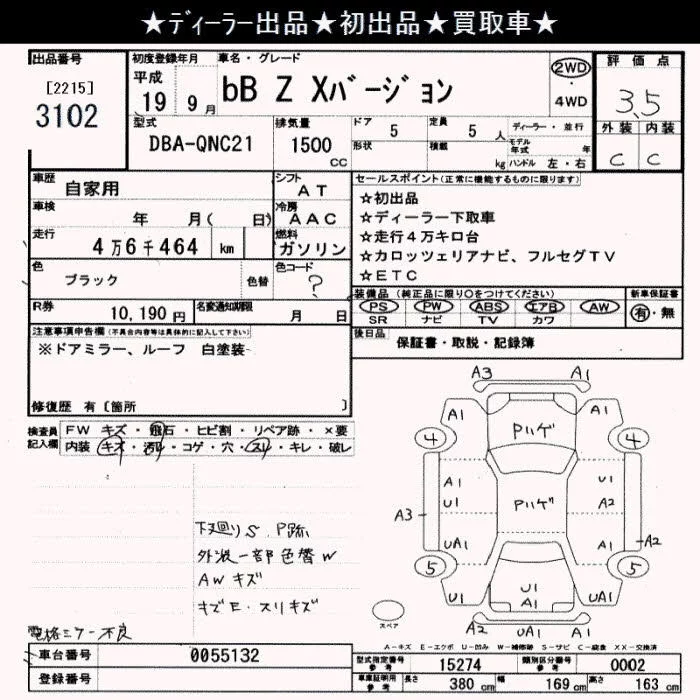 ★ディーラー出品★初出品★買取車★
出品番号
[2215]
3102
初度登録年月
平成
19 9月
車名・グレード
bB Z Xバージョン
2WD
・
4WD
評価点
3.5
外装 内装
C C
型式
DBA-QNC21
排気量
1500
CC
ドア 5
定員 5人
ディーラー・並行
形状
積載 kg
モデル年式 年
ハンドル 左・右
車歴
自家用
シフト
AT
車検
年 月( 日)
冷房
AAC
走行
4万6千464 km
燃料
ガソリン
色
ブラック
色替
色コード
?
R券
10,190円
名変通知期限
月 日
セールスポイント(正常に機能するものに限ります)
☆初出品
☆ディーラー下取車
☆走行4万キロ台
☆カロッツェリアナビ、フルセグTV
☆ETC
装備品(純正品に限り○をつけてください)
PS PW ABS エアB AW
SR ナビ TV カワ
新車保証書
有・無
後日品
保証書・取説・記録簿
注意事項申告欄(不具合内容等は具体的に記入して下さい)
※ドアミラー、ルーフ 白塗装
修復歴 有〔箇所 〕
検査員記入欄
FW キズ・飛石・ヒビ割・リペア跡・×要
内装 キズ・汚れ・コゲ・穴・スレ・キレ・破レ
下廻りS、P跡
外装一部色替W
AWキズ
キズE・スリキズ
電格ミラー不良
A3 A1
A1 A1
Pハゲ
4 4
A1 U1
U1 Pハゲ A2
A3 A2
UA1 A1
5 5
U1 U1 UA1
A1
A2 UA1 A1
スペア
A-キズ E-エクボ U-凹み W-補修跡 S-サビ C-腐食 XX-交換済
車台番号
0055132
登録番号
型式指定番号
参考
15274
類別区分番号
参考
0002
車庫証明用
参考
長さ 380 cm 幅 169 cm 高さ 163 cm